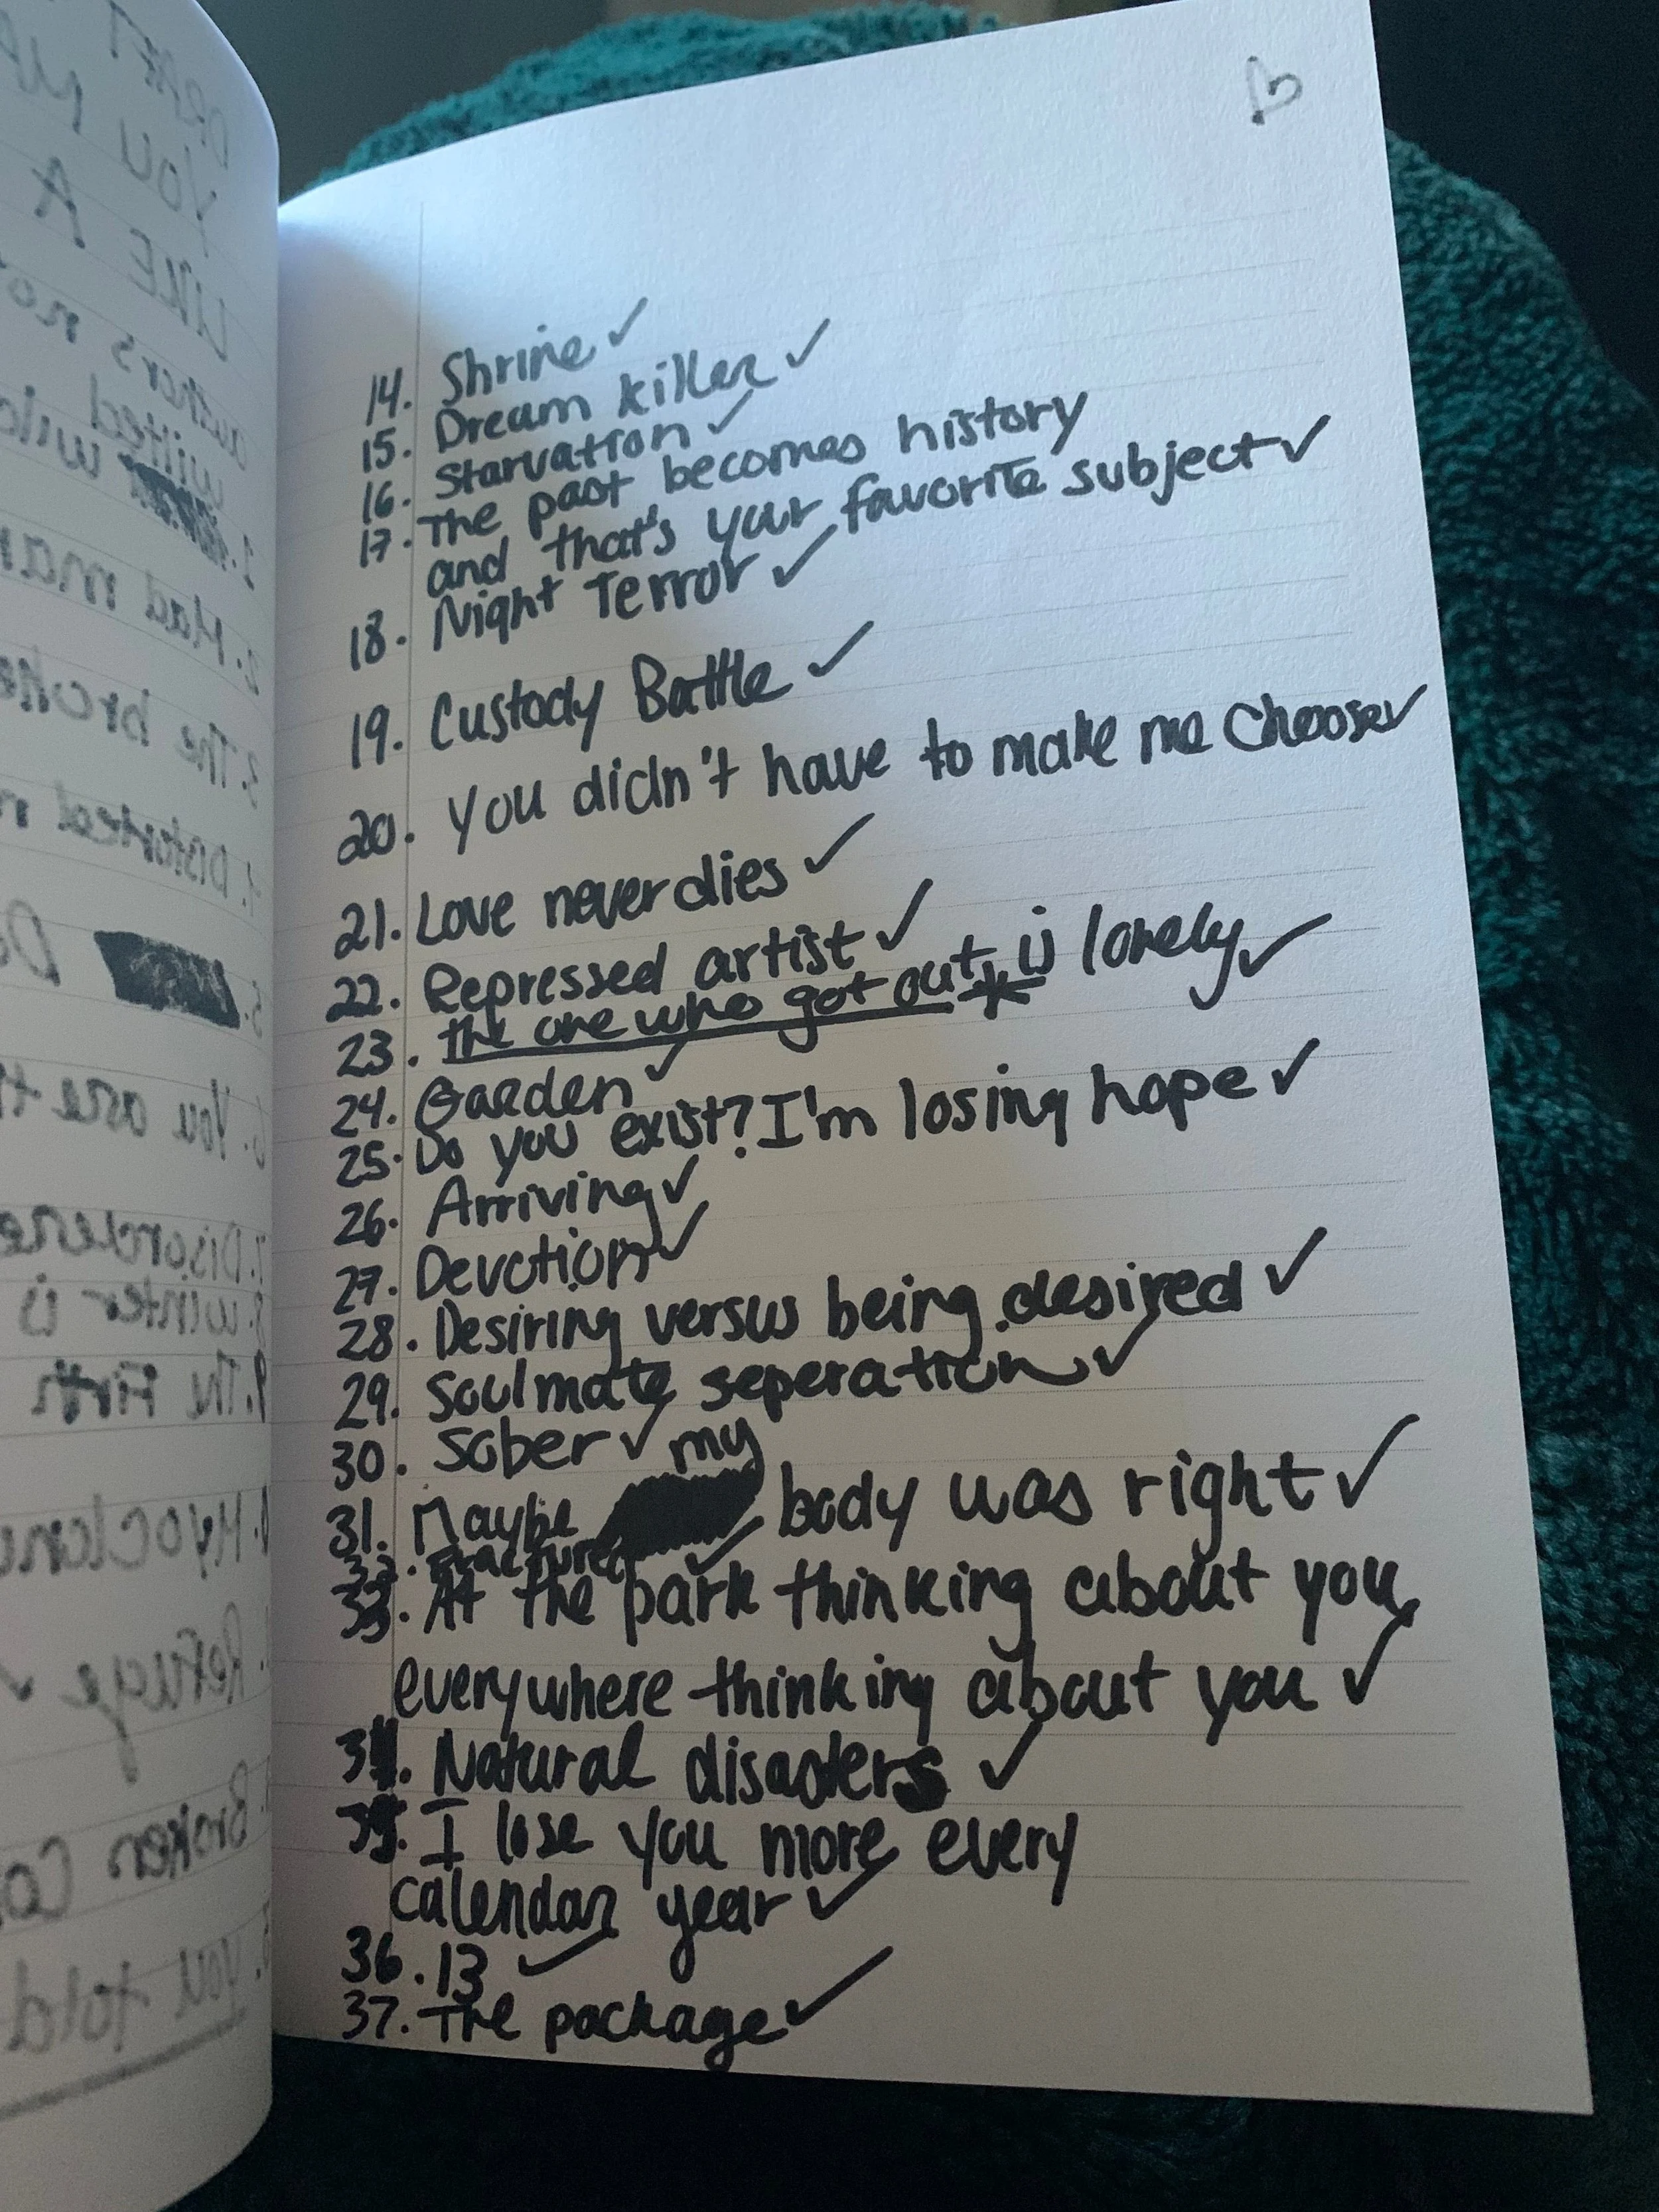 14. Shrine ✓
15. Dream killer ✓
16. Starvation ✓
17. The past becomes history
and that's your favorite subject ✓
18. Night Terror ✓
19. Custody Battle ✓
20. You didn't have to make me choose ✓
21. Love never dies ✓
22. Repressed artist ✓
23. the one who got out * is lonely ✓
24. Garden ✓
25. Do you exist? I'm losing hope ✓
26. Arriving ✓
27. Devotion ✓
28. Desiring versus being desired ✓
29. Soulmate seperation ✓
30. Sober ✓
31. Maybe my body was right ✓
32. Fractured ✓
33. At the park thinking about you,
everywhere thinking about you ✓
34. Natural disasters ✓
35. I lose you more every
calendar year ✓
36. 13 ✓
37. The package ✓